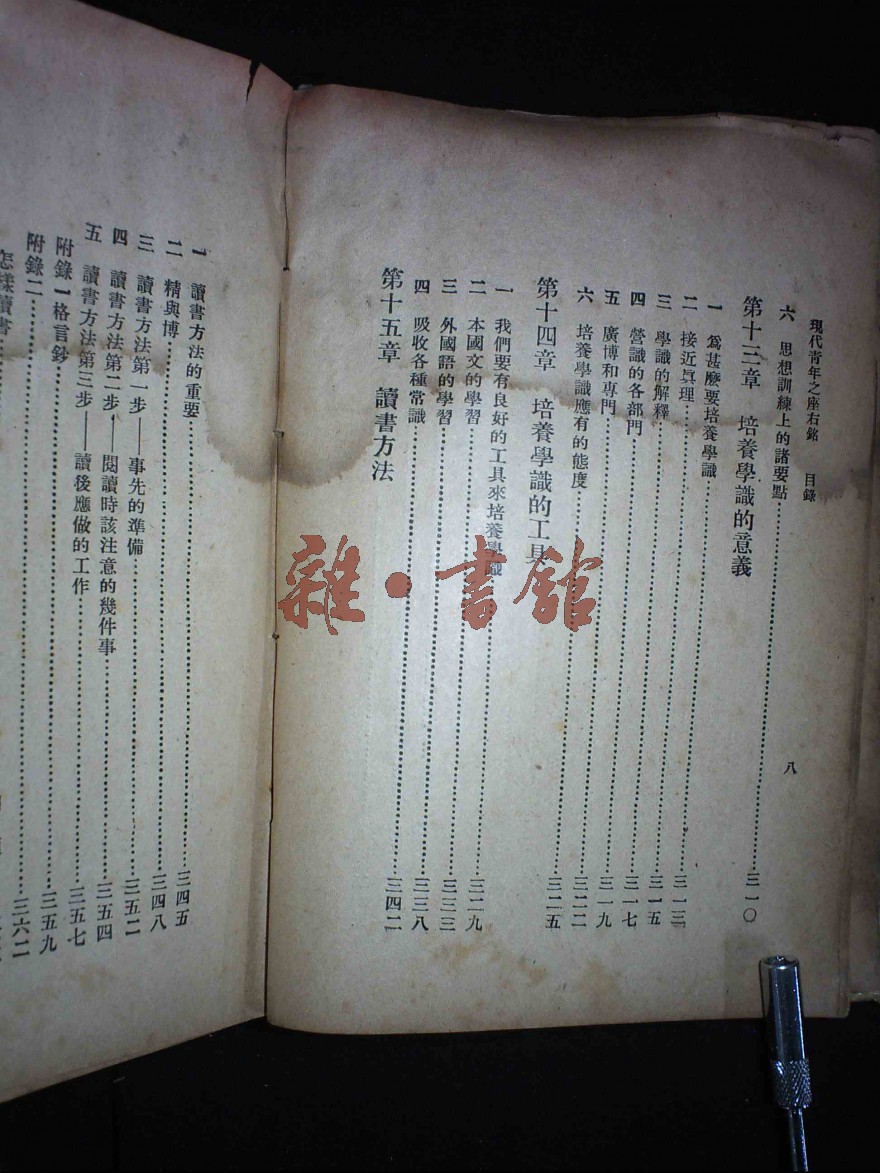 現代青年之座右銘 目錄 八
六 思想訓練上的諸要點……三一〇
第十三章 培養學識的意義
一 爲甚麼要培養學識……三一三
二 接近眞理……三一五
三 學識的解釋……三一七
四 營識的各部門……三一九
五 廣博和專門……三二二
六 培養學識應有的態度……三二五
第十四章 培養學識的工具
一 我們要有良好的工具來培養學識……三二九
二 本國文的學習……三三三
三 外國語的學習……三三八
四 吸收各種常識……三四二
第十五章 讀書方法
一 讀書方法的重要……三四五
二 精與博……三四八
三 讀書方法第一步——事先的準備……三五二
四 讀書方法第二步——閱讀時該注意的幾件事……三五四
五 讀書方法第三步——讀後應做的工作……三五七
附錄一格言鈔……三五九
附錄二……三六二
怎樣讀書
雜·書館